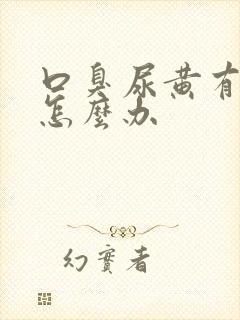 口臭尿黄有
怎麼办
幻實者